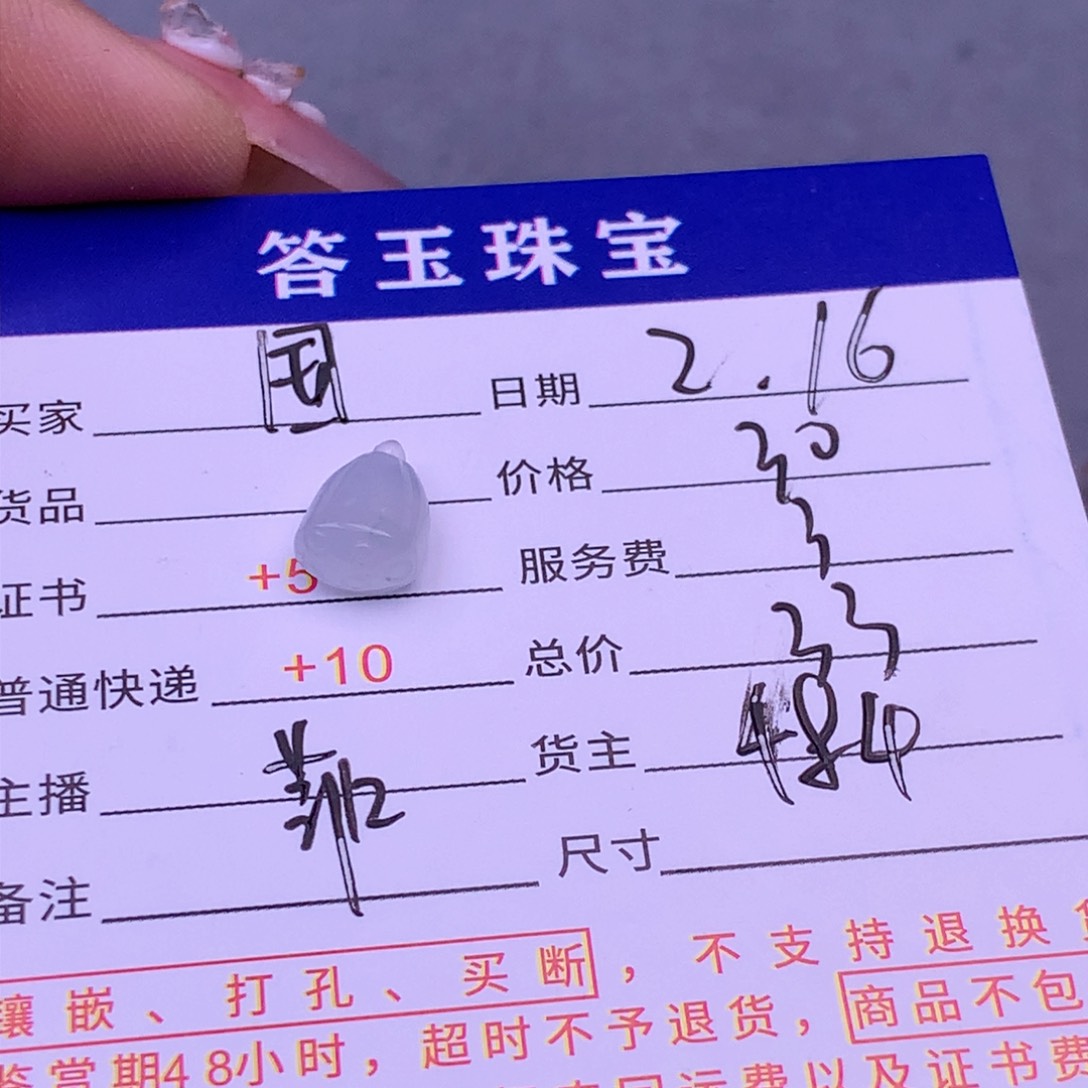 答玉珠宝
买家 国 日期 2.16
货品 价格 30
证书 +5 服务费 3
普通快递 +10 总价 33
主播 菲 货主 484
备注 尺寸
镶嵌、打孔、买断，不支持退换
鉴赏期48小时，超时不予退货，商品不包
运费以及证书费